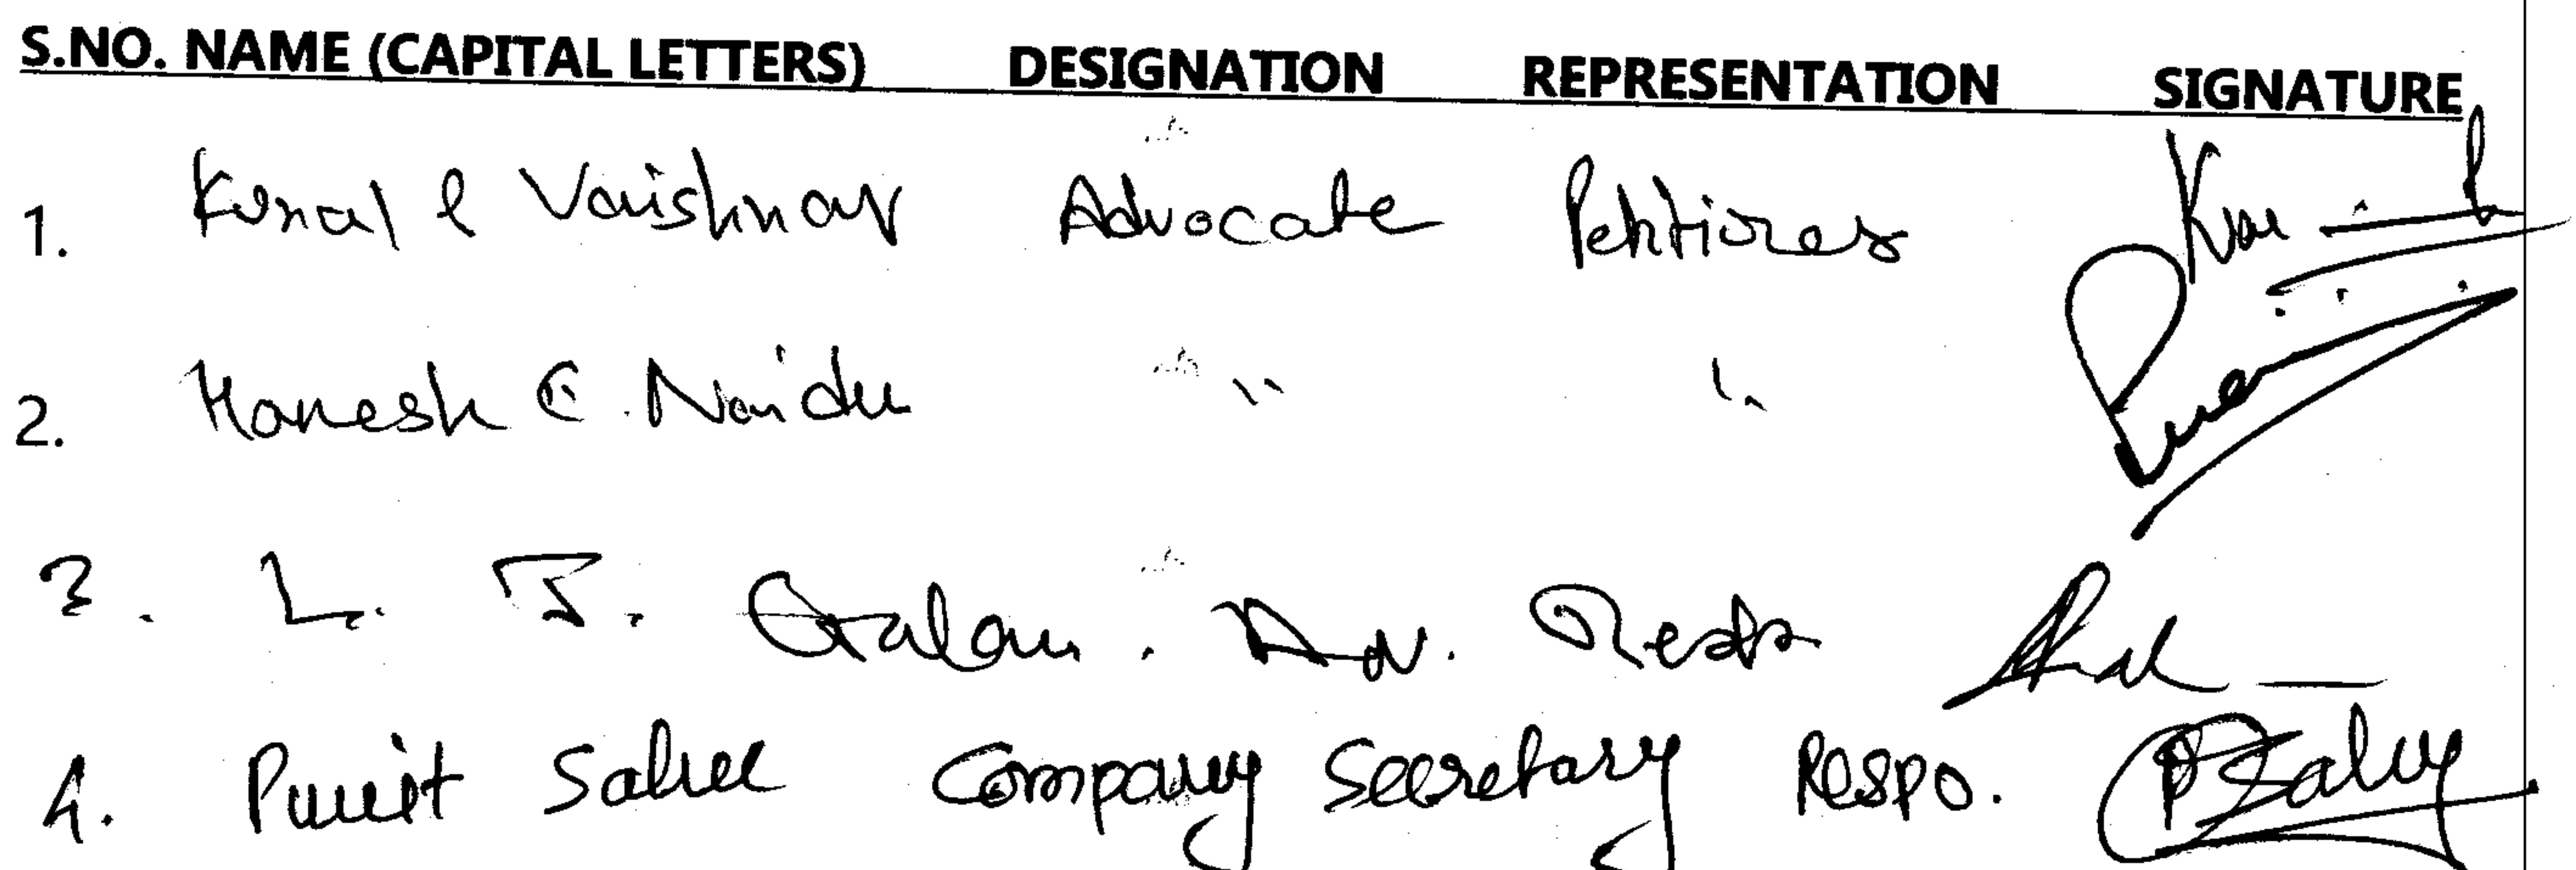 S.NO. NAME (CAPITAL LETTERS) DESIGNATION REPRESENTATION SIGNATURE
1. Kunal P Vaishnav Advocate Petitioner
2. Hanesh C. Naidu " "
3. L. J. Gulam. Adv.
4. Punit Sahu Company Secretary Respo.